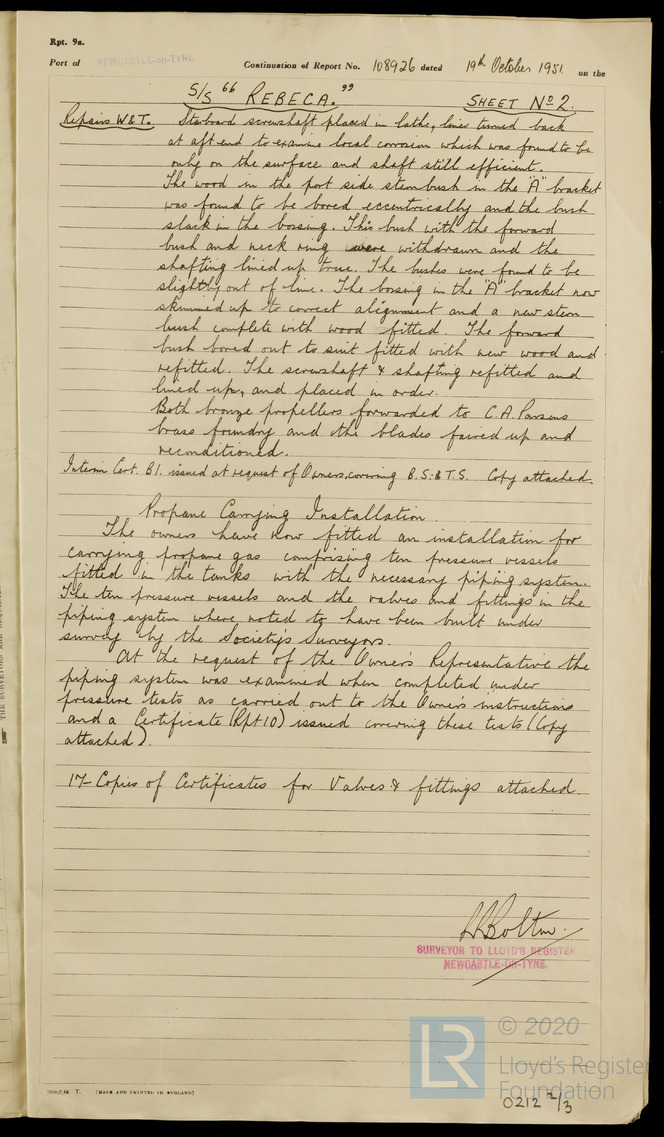 Rpt. 9a.
Port of NEWCASTLE-on-TYNE Continuation of Report No. 108926 dated 19th October 1951. on the
S/S "REBECA." SHEET No 2.
Repairs W&T. Starboard screwshaft placed in lathe, liner turned back
at aft end to examine local corrosion which was found to be
only on the surface and shaft still efficient.
The wood in the port side sternbush in the "A" bracket
was found to be bored eccentrically and the bush
slack in the bossing. This bush with the forward
bush and neck ring were withdrawn and the
shafting lined up true. The bushes were found to be
slightly out of line. The bossing in the "A" bracket now
skimmed up to correct alignment and a new stern
bush complete with wood fitted. The forward
bush bored out to suit fitted with new wood and
refitted. The screwshaft & shafting refitted and
lined up, and placed in order.
Both bronze propellers forwarded to C.A. Parsons
brass foundry and the blades faired up and
reconditioned.
Interim Cert. B1. issued at request of Owners, covering B.S. & T.S. Copy attached.
Propane Carrying Installation.
The owners have now fitted an installation for
carrying propane gas comprising ten pressure vessels
fitted in the tanks with the necessary piping system.
The ten pressure vessels and the valves and fittings in the
piping system where noted to have been built under
survey by the Society's Surveyors.
At the request of the Owner's Representative the
piping system was examined when completed under
pressure tests as carried out to the Owner's instructions
and a Certificate (Rpt 10) issued covering these tests (Copy
attached).
17- Copies of Certificates for Valves & fittings attached.
Bolton.
SURVEYOR TO LLOYD'S REGISTER
NEWCASTLE-ON-TYNE.
LR © 2020
Lloyd's Register
Foundation
T. (MADE AND PRINTED IN ENGLAND)
0212 2/3
THE SURVEYORS ARE REQUESTED